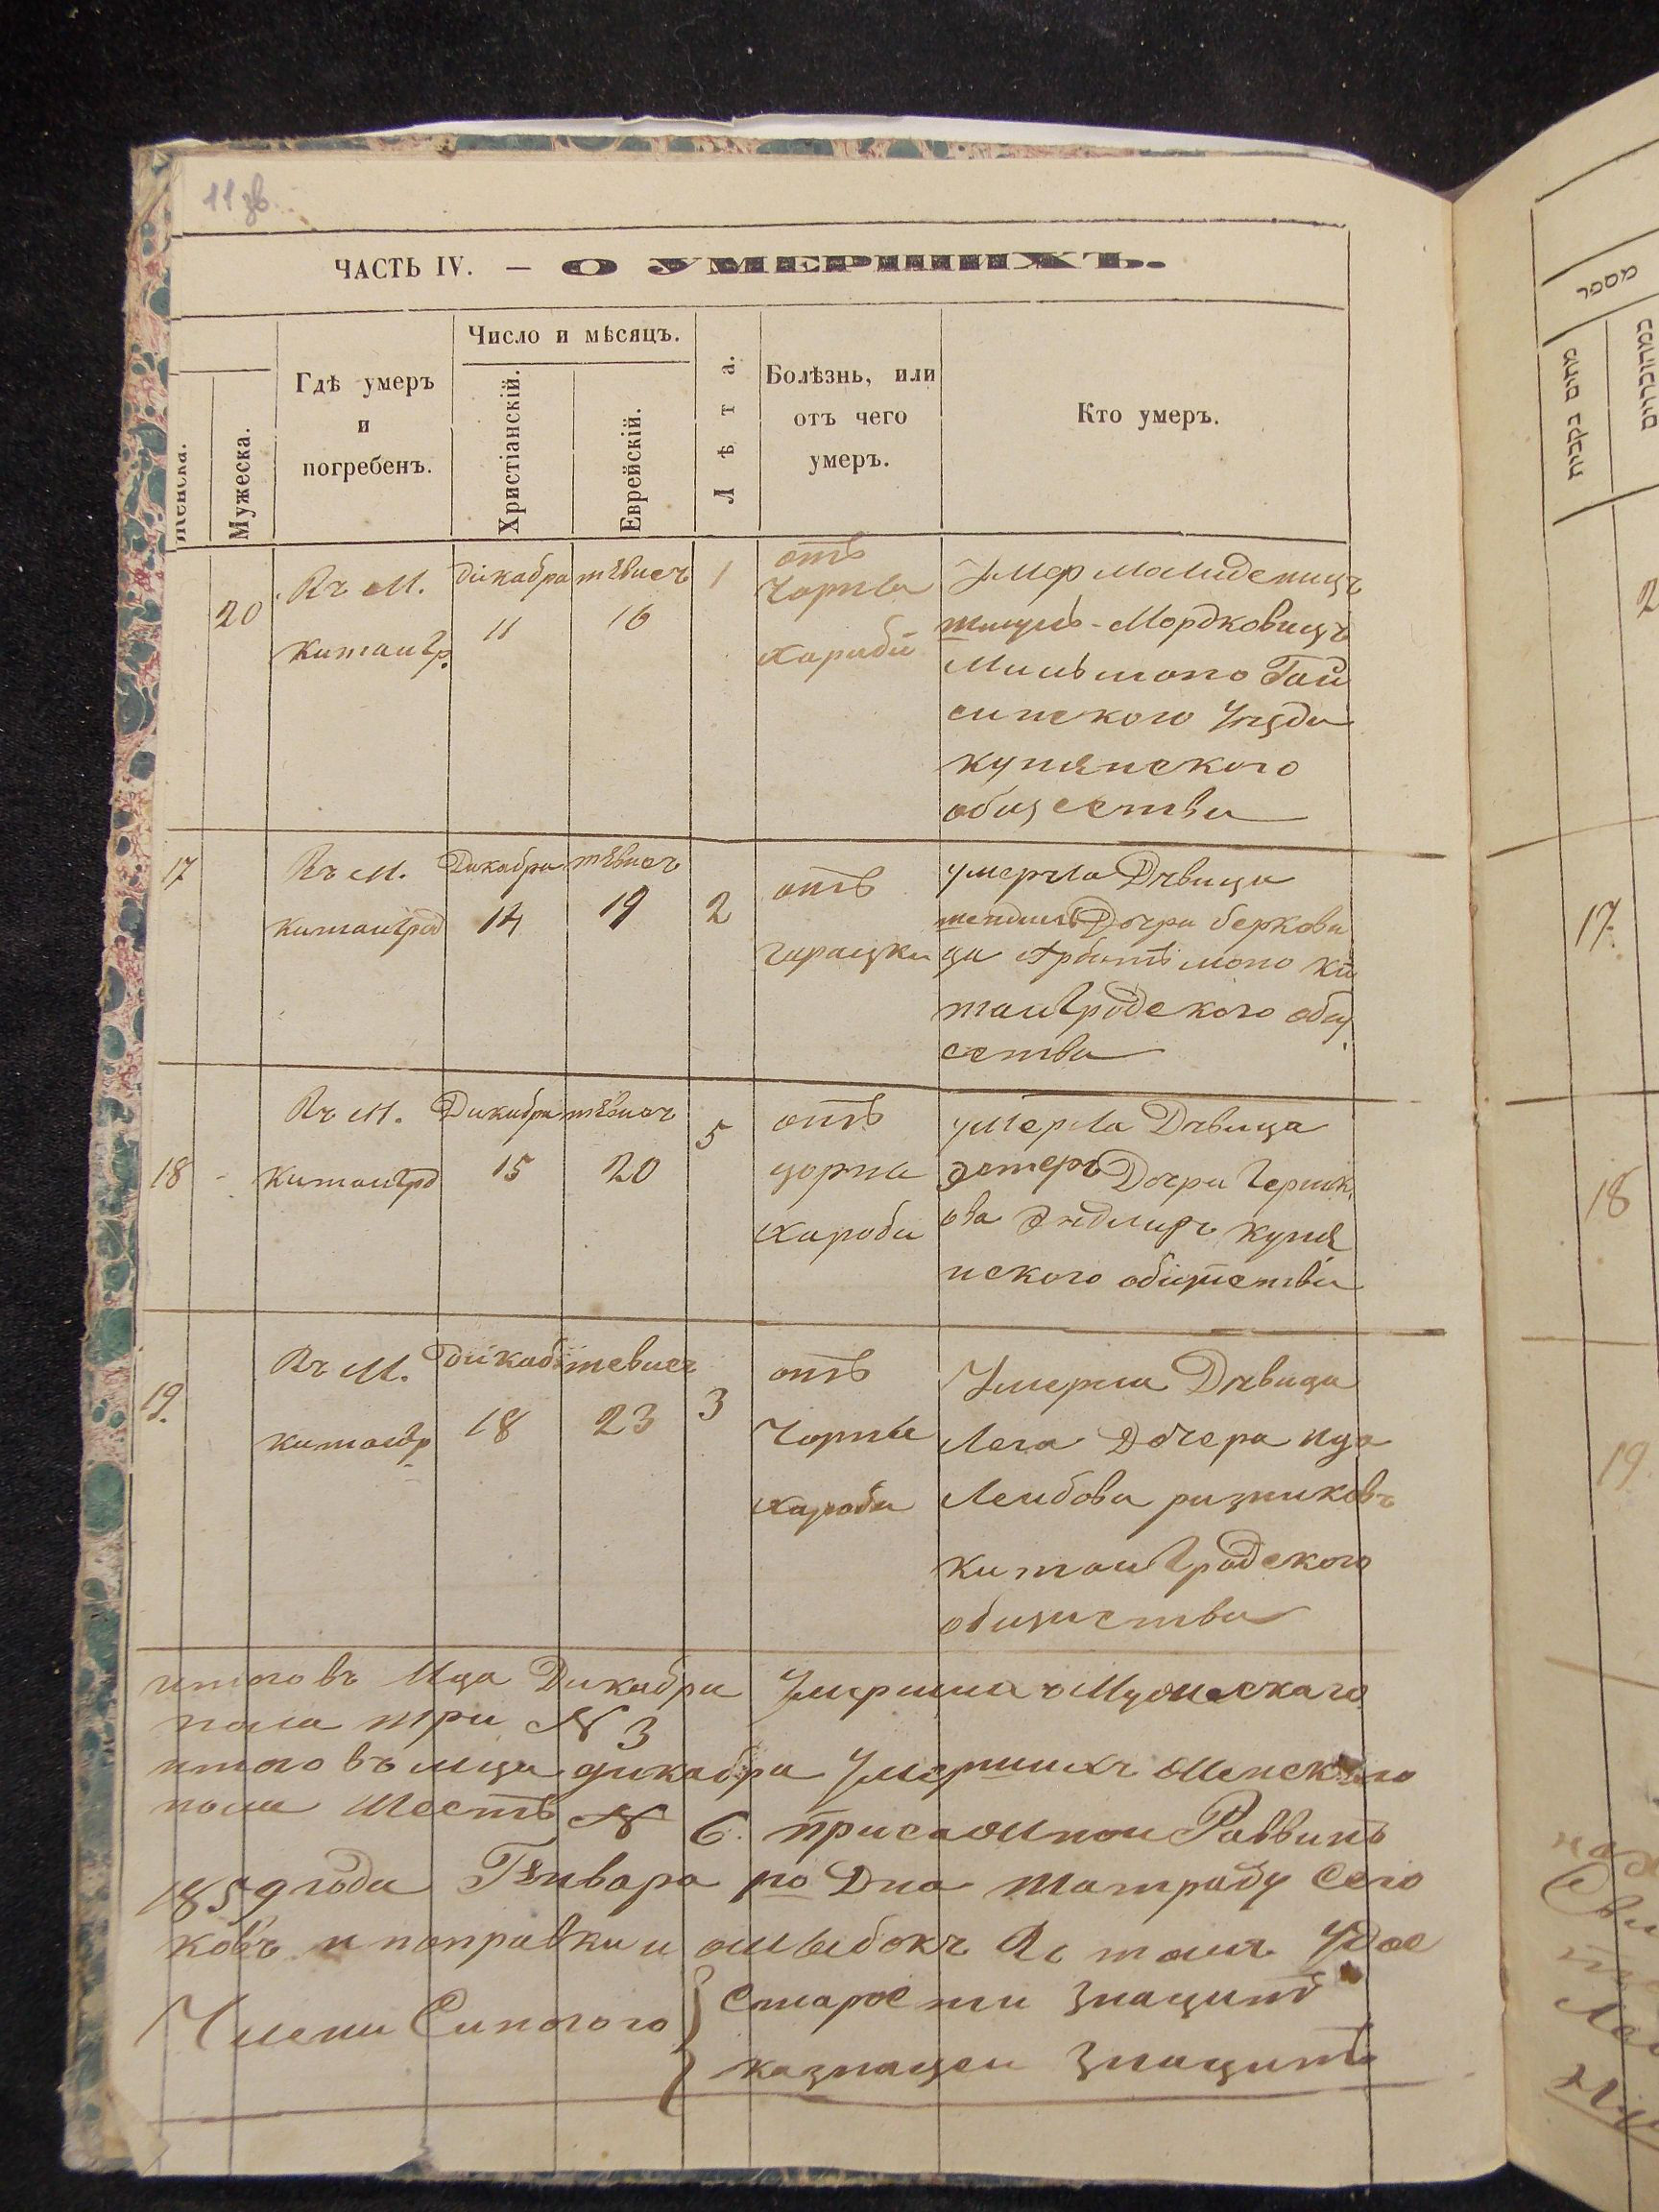 11 зв.
ЧАСТЬ IV. — О УМЕРШИХЪ.
Женска.
Мужеска.
Гдѣ умеръ
и
погребенъ.
Число и мѣсяцъ.
Христіанскій.
Еврейскій.
Лѣта.
Болѣзнь, или
отъ чего
умеръ.
Кто умеръ.
20
Въ М.
Китайгр.
декабра
11
тѣвисъ
16
1
отъ
Чорна
хароби
Умер
Мордковицъ
Гай
синского уезда
купянского
общества
17
Въ М.
Китайгрод
Дикабра
14
тѣвисъ
19
2
отъ
гарацки
умерла Дѣвица
Дочра беркова
ки
тайгродского общ
ества
18
Въ М.
Китайгрд
Дикабра
15
тѣвисъ
20
5
отъ
цорна
хароби
умерла Дѣвица
Эстеръ Дочра Гершк
ова Эндлиръ купя
нского общества
19.
Въ М.
Китайгр
дикаб
18
тевисъ
23
3
отъ
Чорна
хароби
Умерла Дѣвица
Лега Дочера ица
Леибова ризниковъ
Китайгродского
общиства
итого въ Мца Дикабра Умершихъ Мужескаго
пола три № 3
итого въ мца дикабра Умершихъ Женского
пола Шесть № 6. присажной Раввинъ
1859 года Генвара по Дна татраду Сего
ковъ и поправки и ошыбокъ
Члени Синогого
Старости Значитъ
казнацеи Значитъ
ספר
17.
18
19